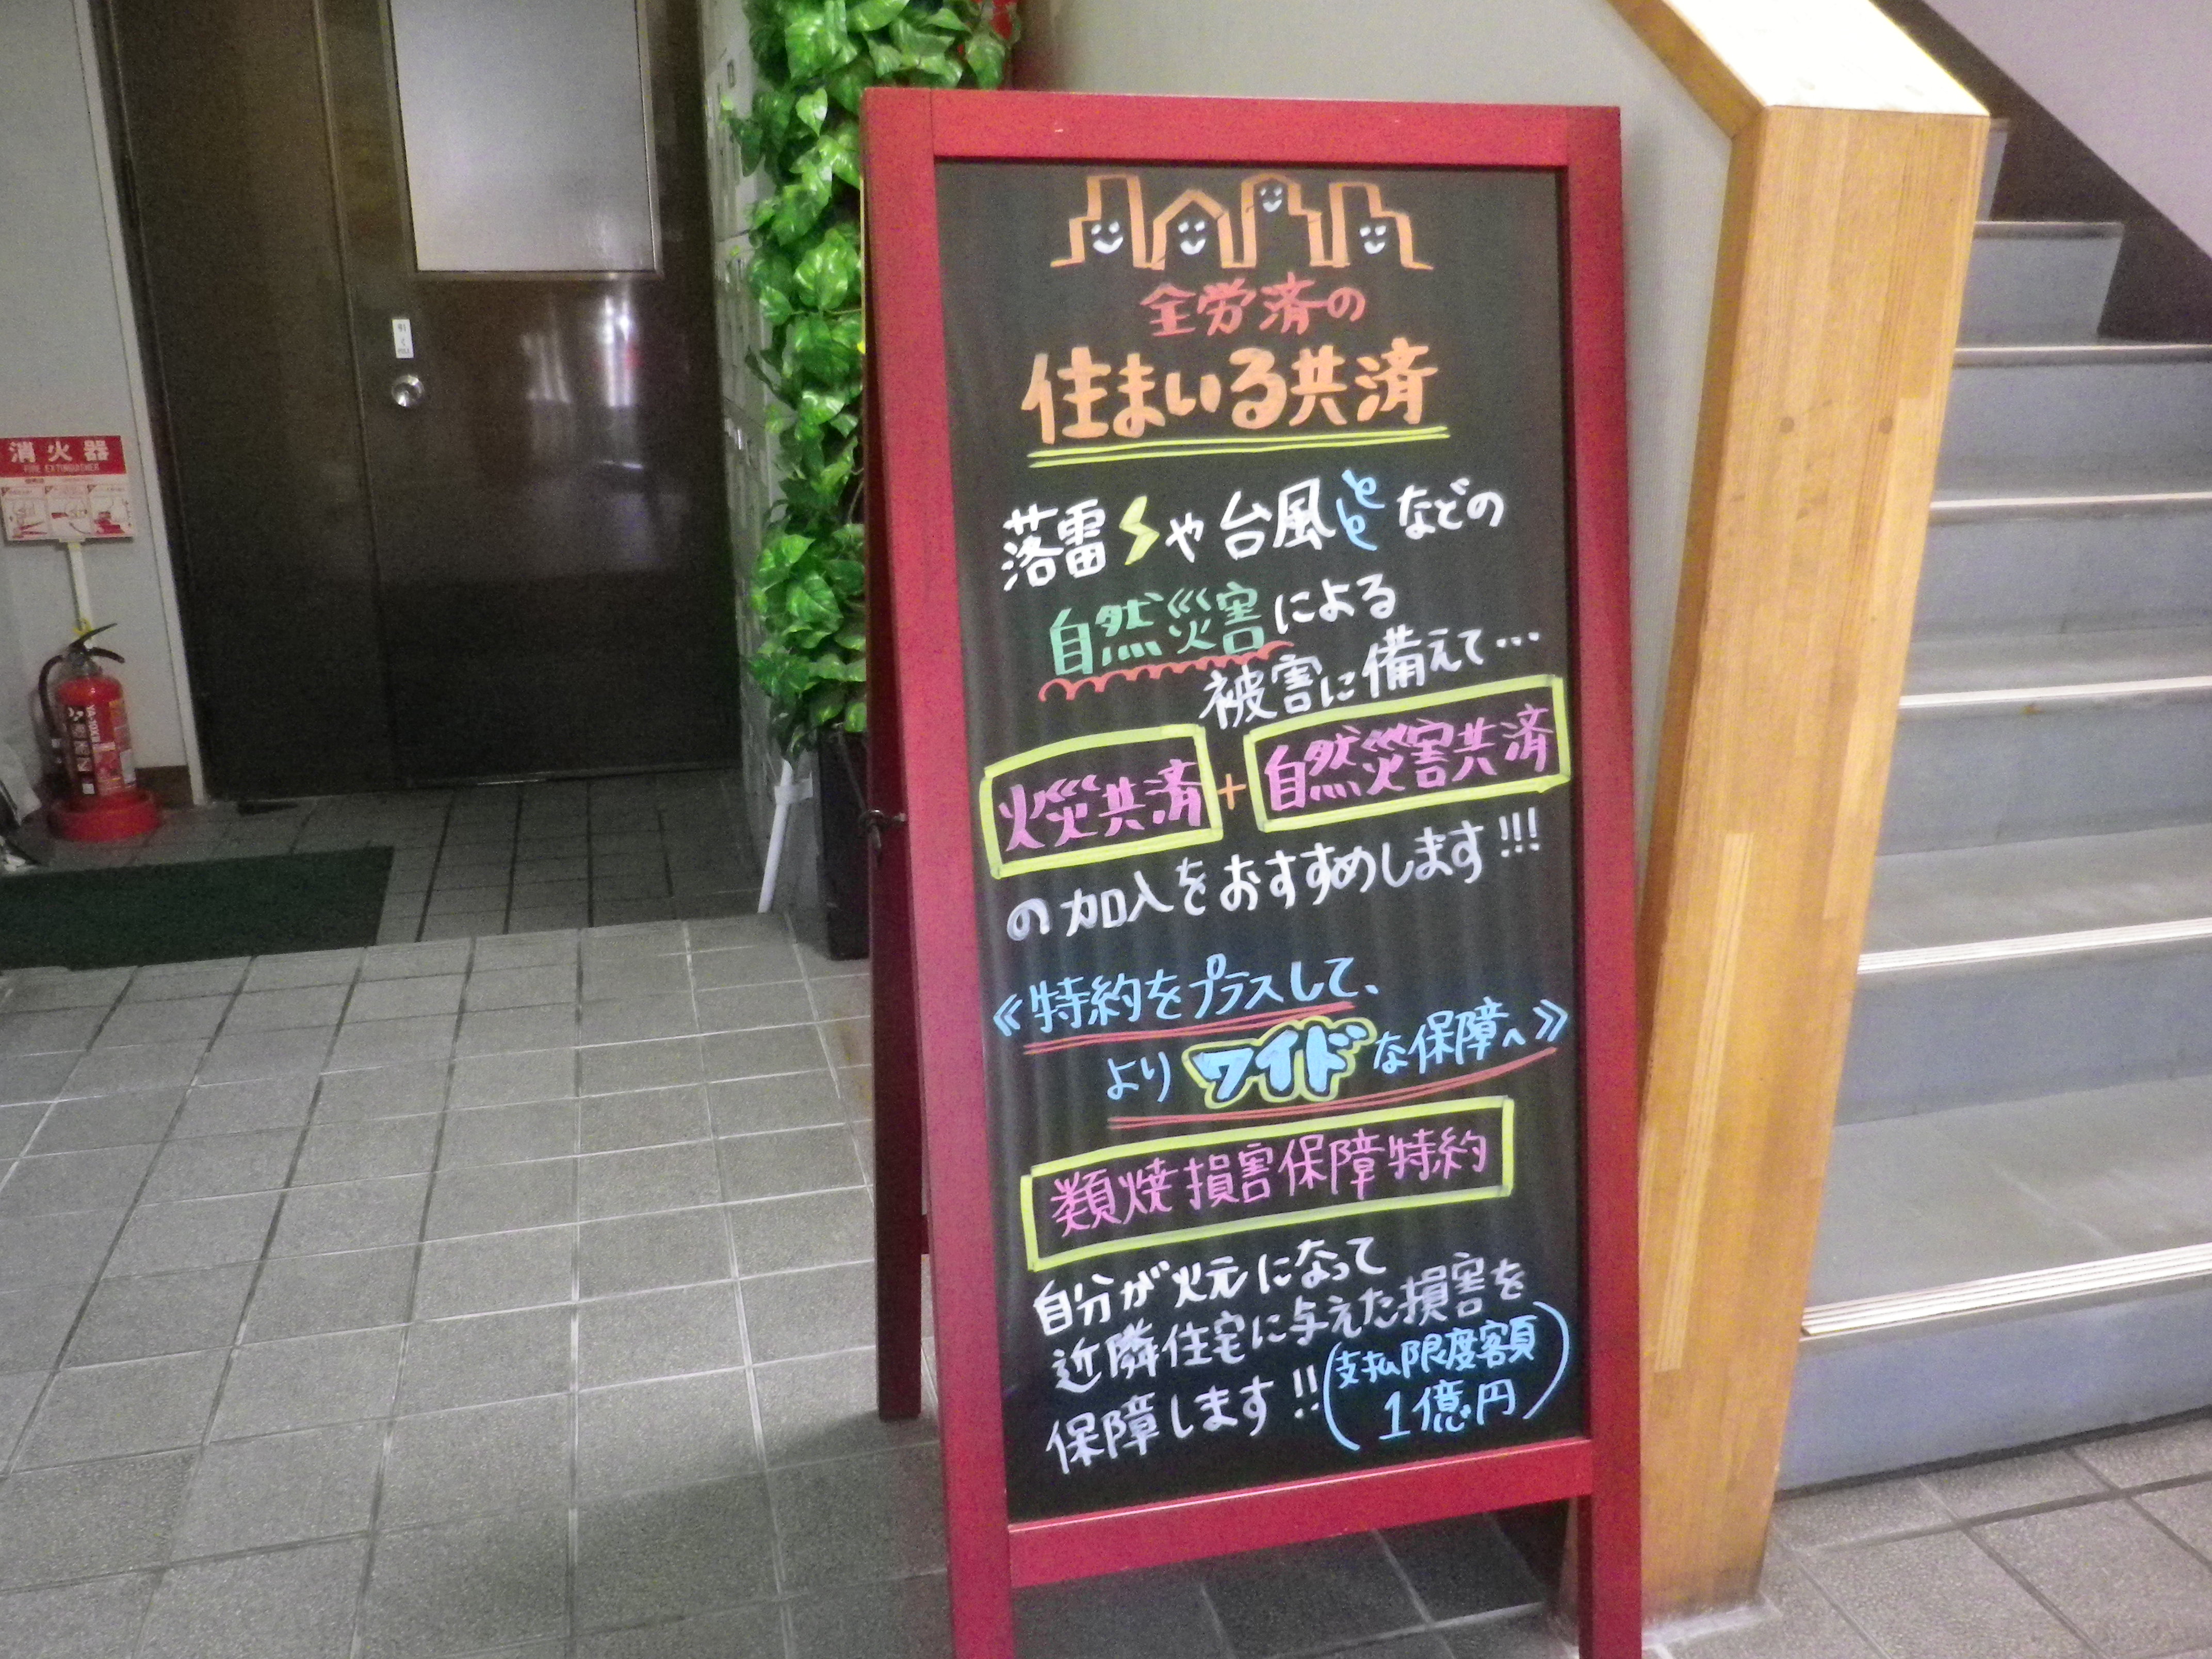 全労済の
住まいる共済
落雷や台風などの
自然災害による
被害に備えて…
火災共済+自然災害共済
の加入をおすすめします!!!
《特約をプラスして、
よりワイドな保障へ》
類焼損害保障特約
自分が火元になって
近隣住宅に与えた損害を
保障します!!(支払限度客頁
1億円)
消火器
FIRE EXTINGUISHER
引く